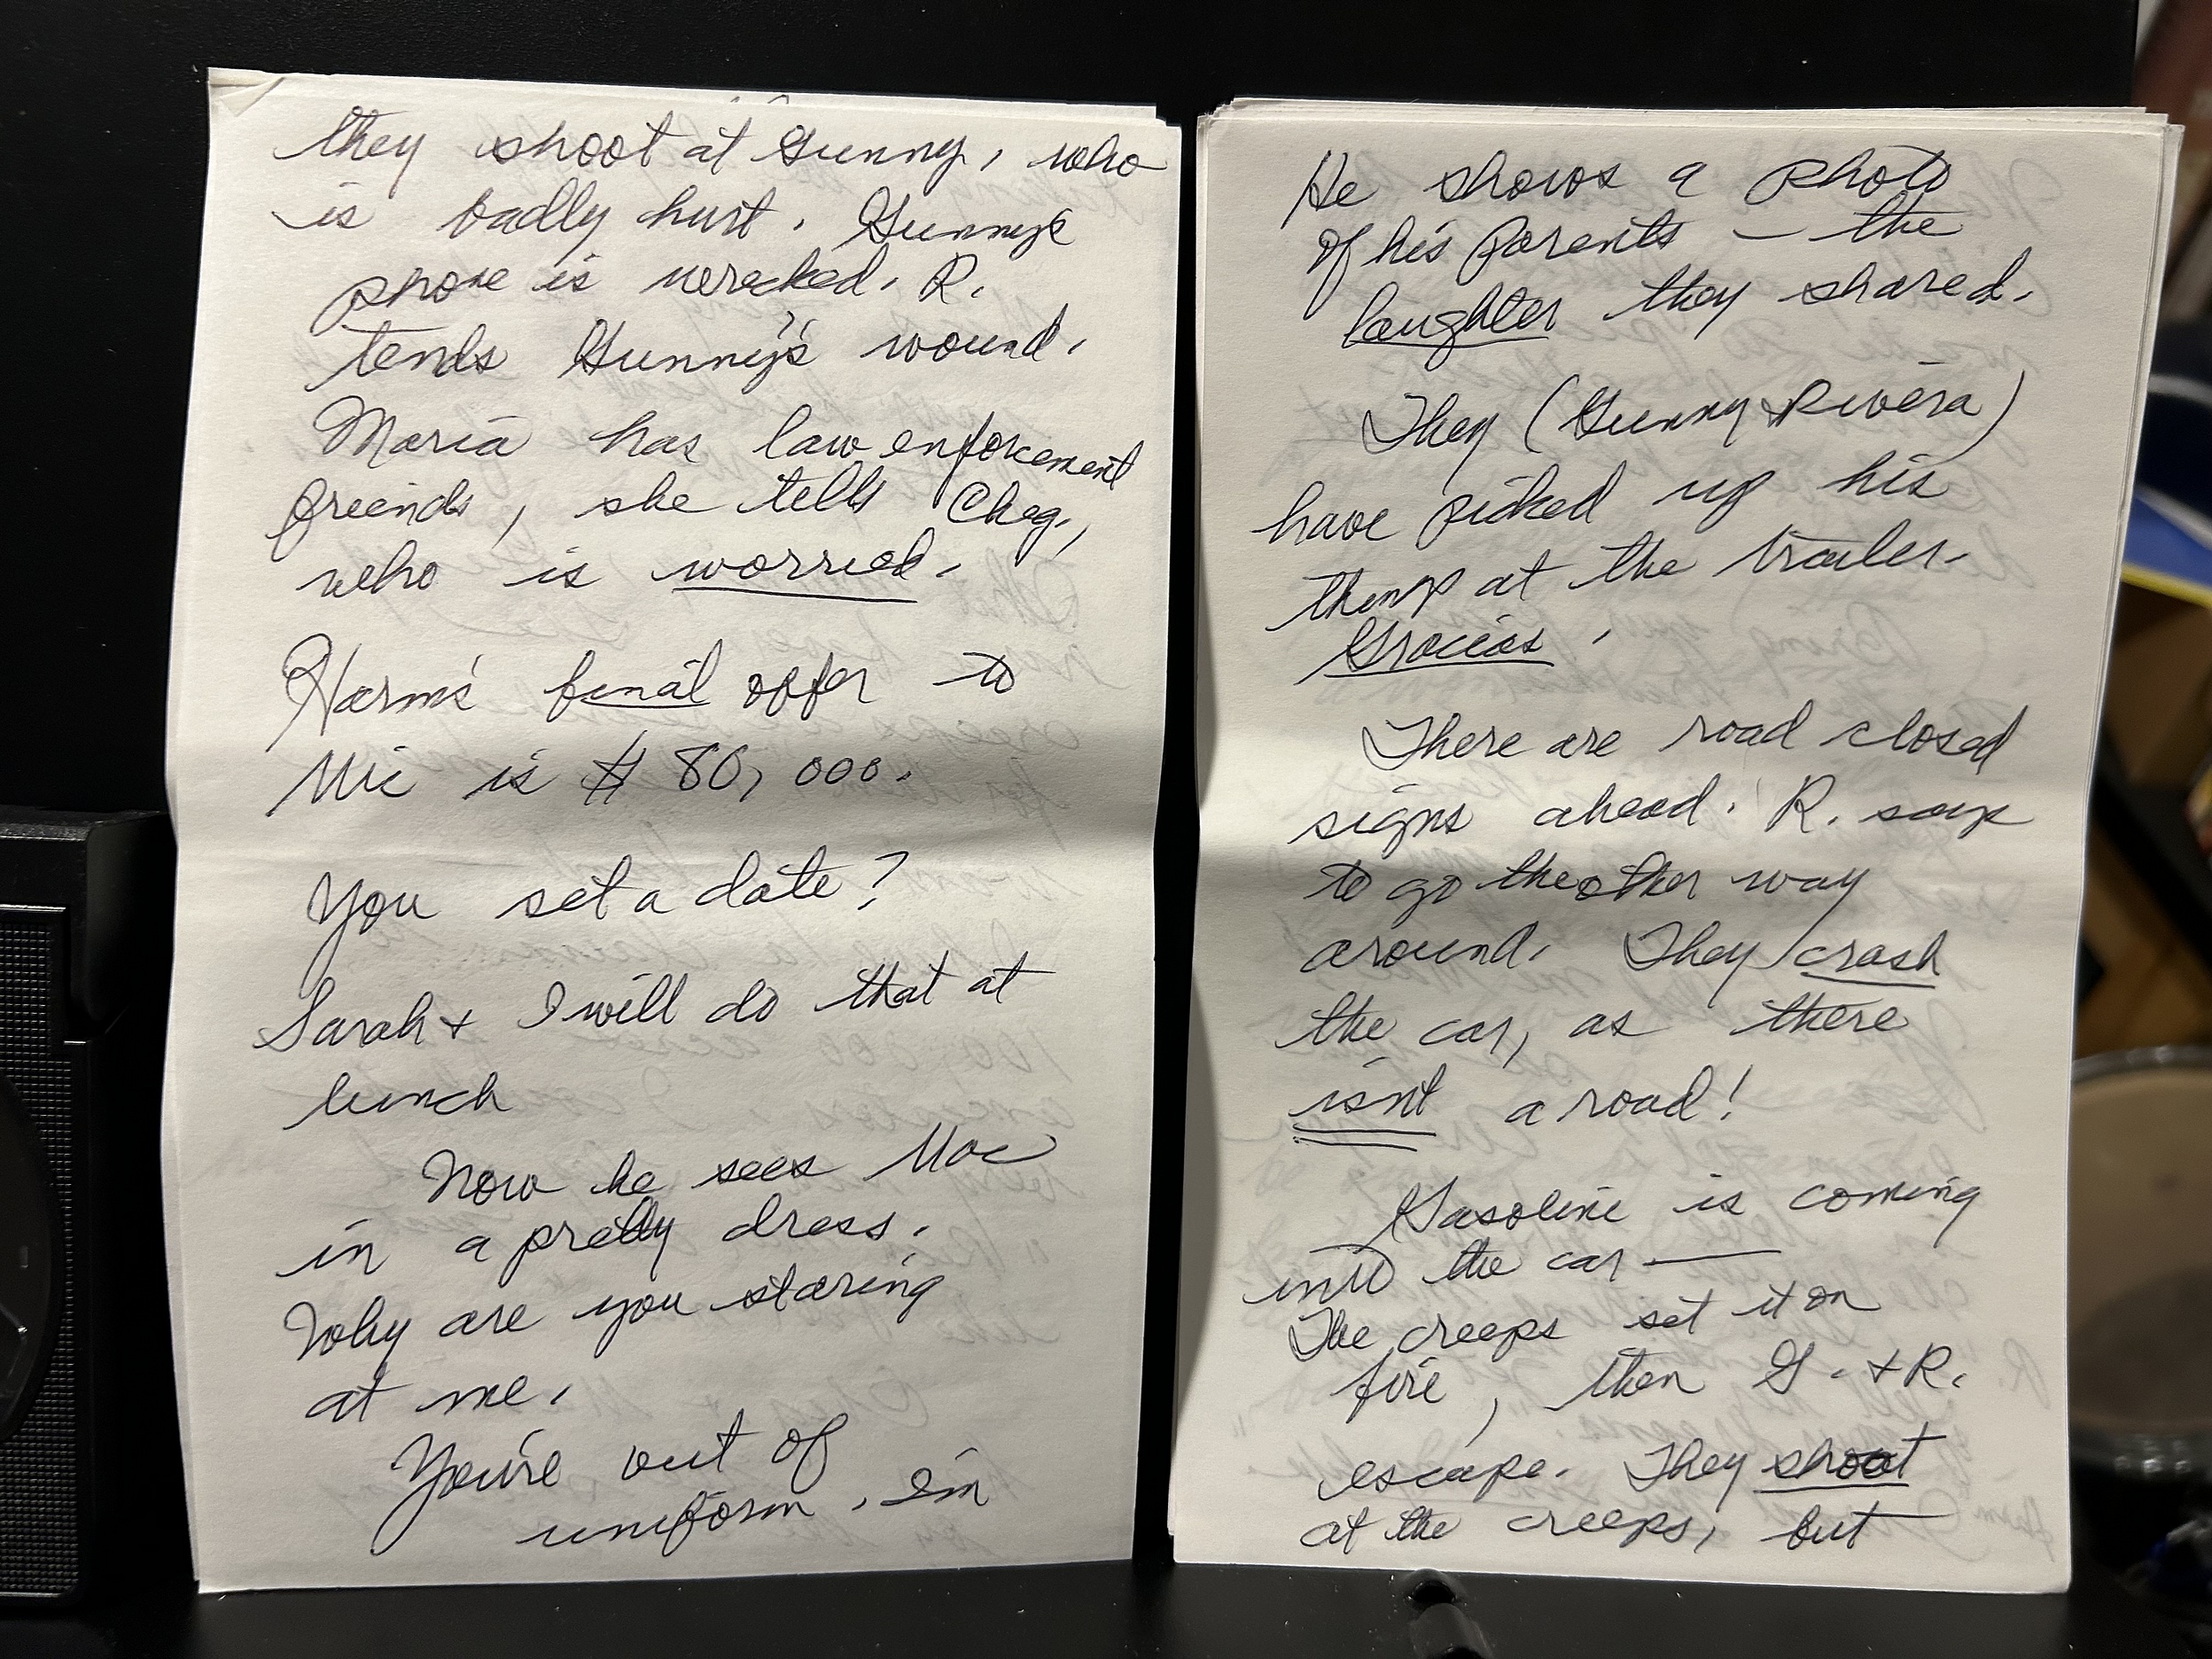 they shoot at Gunny, who
is badly hurt. Gunny's
phone is wrecked. R.
tends Gunny's wound.
Maria has law enforcement
friends, she tells Cheg.,
who is worried.
Harm's final offer to
Mic is $80,000.
You set a date?
Sarah + I will do that at
lunch
Now he sees Mac
in a pretty dress.
Why are you staring
at me.
You're out of
uniform. I'm
He shows a photo
of his parents — the
laughter they shared.
They (Gunny + Rivera)
have picked up his
things at the trailer.
Gracias.
There are road closed
signs ahead. R. says
to go the other way
around. They crash
the car, as there
isn't a road!
Gasoline is coming
into the car —
The creeps set it on
fire, then G. + R.
escape. They shoot
at the creeps, but